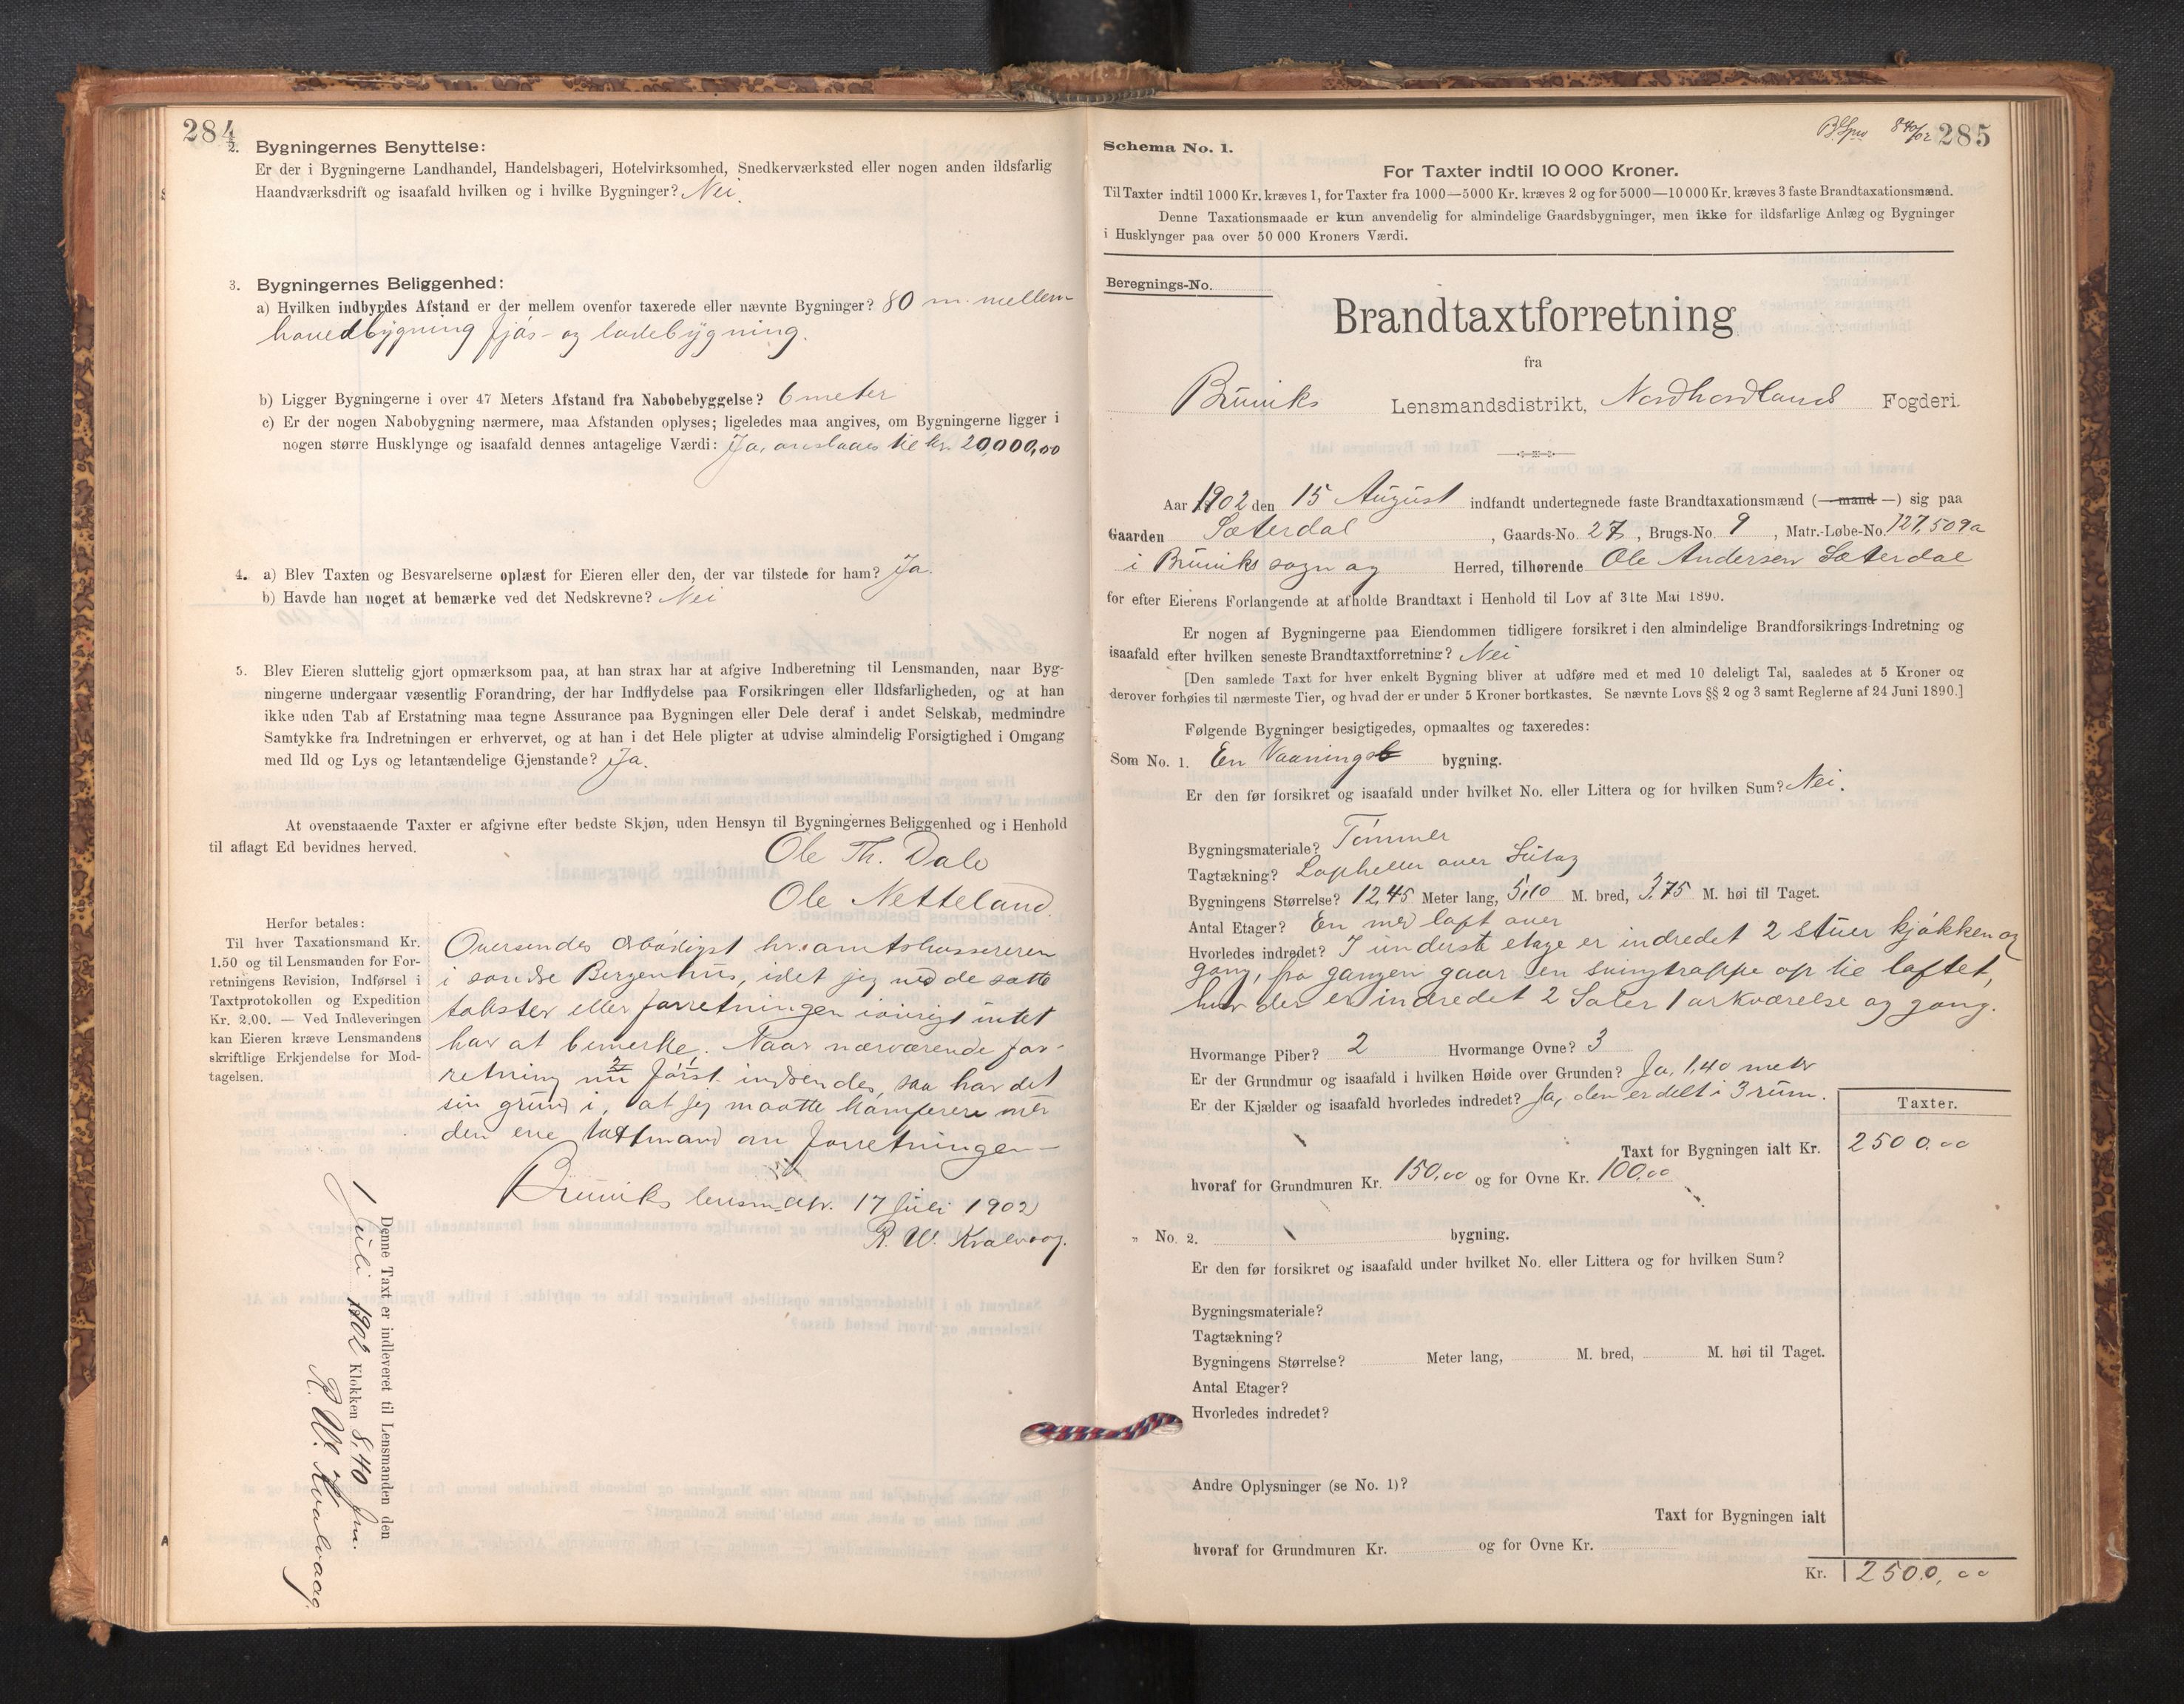 284
2. Bygningernes Benyttelse:
Er der i Bygningerne Landhandel, Handelsbageri, Hotelvirksomhed, Snedkerværksted eller nogen anden ildsfarlig
Haandværksdrift og isaafald hvilken og i hvilke Bygninger? Nei.
3. Bygningernes Beliggenhed:
a) Hvilken indbyrdes Afstand er der mellem ovenfor taxerede eller nævnte Bygninger? 80 m. mellem
hovedbygning fjøs- og ladebygning.
b) Ligger Bygningerne i over 47 Meters Afstand fra Nabobebyggelse? 6 meter
c) Er der nogen Nabobygning nærmere, maa Afstanden oplyses; ligeledes maa angives, om Bygningerne ligger i
nogen større Husklynge og isaafald dennes antagelige Værdi: Ja, anslaaes til kr. 20,000,00
4. a) Blev Taxten og Besvarelserne oplæst for Eieren eller den, der var tilstede for ham? Ja.
b) Havde han noget at bemærke ved det Nedskrevne? Nei
5. Blev Eieren sluttelig gjort opmærksom paa, at han strax har at afgive Indberetning til Lensmanden, naar Byg-
ningerne undergaar væsentlig Forandring, der har Indflydelse paa Forsikringen eller Ildsfarligheden, og at han
ikke uden Tab af Erstatning maa tegne Assurance paa Bygningen eller Dele deraf i andet Selskab, medmindre
Samtykke fra Indretningen er erhvervet, og at han i det Hele pligter at udvise almindelig Forsigtighed i Omgang
med Ild og Lys og letantændelige Gjenstande? Ja.
At ovenstaaende Taxter er afgivne efter bedste Skjøn, uden Hensyn til Bygningernes Beliggenhed og i Henhold
til aflagt Ed bevidnes herved.
Ole Th. Dale
Ole Netteland.
Herfor betales:
Til hver Taxationsmand Kr.
1.50 og til Lensmanden for For-
retningens Revision, Indførsel i
Taxtprotokollen og Expedition
Kr. 2.00. — Ved Indleveringen
kan Eieren kræve Lensmandens
skriftlige Erkjendelse for Mod-
tagelsen.
Oversendes ærbødigst hr. amtskassereren
i søndre Bergenhus, idet jeg ved de satte
takster eller forretningen iøvrigt intet
har at bemerke. Naar nærværende for-
retning nu først indsendes, saa har det
sin grund i, at jeg maatte kamferere med
den ene taxtmand om forretningen —
Bruviks lensm.dstr. 17 Juli 1902
R. W. Kvalvaag.
Denne Taxt er indleveret til Lensmanden den
1 Juli 1902 Klokken 8,40 fm.
R. W. Kvalvaag.
840/02 285
Schema No. 1.
For Taxter indtil 10 000 Kroner.
Til Taxter indtil 1000 Kr. kræves 1, for Taxter fra 1000—5000 Kr. kræves 2 og for 5000—10 000 Kr. kræves 3 faste Brandtaxationsmænd.
Denne Taxationsmaade er kun anvendelig for almindelige Gaardsbygninger, men ikke for ildsfarlige Anlæg og Bygninger
i Husklynger paa over 50 000 Kroners Værdi.
Beregnings-No.
Brandtaxtforretning
fra
Bruviks Lensmandsdistrikt, Nordhordlands Fogderi.
Aar 1902 den 15 August indfandt undertegnede faste Brandtaxationsmænd (— mand —) sig paa
Gaarden Sæterdal, Gaards-No. 27, Brugs-No. 9, Matr.-Løbe-No. 127, 509a
i Bruviks sogn og Herred, tilhørende Ole Andersen Sæterdal
for efter Eierens Forlangende at afholde Brandtaxt i Henhold til Lov af 31te Mai 1890.
Er nogen af Bygningerne paa Eiendommen tidligere forsikret i den almindelige Brandforsikrings-Indretning og
isaafald efter hvilken seneste Brandtaxtforretning? Nei
[Den samlede Taxt for hver enkelt Bygning bliver at udføre med et med 10 deleligt Tal, saaledes at 5 Kroner og
derover forhøies til nærmeste Tier, og hvad der er under 5 Kroner bortkastes. Se nævnte Lovs §§ 2 og 3 samt Reglerne af 24 Juni 1890.]
Følgende Bygninger besigtigedes, opmaaltes og taxeredes:
Som No. 1. En Vaanings bygning.
Er den før forsikret og isaafald under hvilket No. eller Littera og for hvilken Sum? Nei.
Bygningsmateriale? Tømmer
Tagtækning? Lapheller over Sutag
Bygningens Størrelse? 12,45 Meter lang, 5,10 M. bred, 3,75 M. høi til Taget.
Antal Etager? En med loft over
Hvorledes indredet? I underste etage er indredet 2 stuer kjøkken og
gang, fra gangen gaar en svingtrappe op til loftet,
hvor der er indredet 2 Saler 1 arkværelse og gang.
Hvormange Piber? 2 Hvormange Ovne? 3
Er der Grundmur og isaafald i hvilken Høide over Grunden? Ja, 1,40 meter
Er der Kjælder og isaafald hvorledes indredet? Ja, den er delt i 3 rum.
Taxter.
Taxt for Bygningen ialt Kr. 2500.00
hvoraf for Grundmuren Kr. 150,00 og for Ovne Kr. 100,00
" No. 2. bygning.
Er den før forsikret og isaafald under hvilket No. eller Littera og for hvilken Sum?
Bygningsmateriale?
Tagtækning?
Bygningens Størrelse? Meter lang, M. bred, M. høi til Taget.
Antal Etager?
Hvorledes indredet?
Andre Oplysninger (se No. 1)?
Taxt for Bygningen ialt
hvoraf for Grundmuren Kr. og for Ovne Kr.
Kr. 2500,00